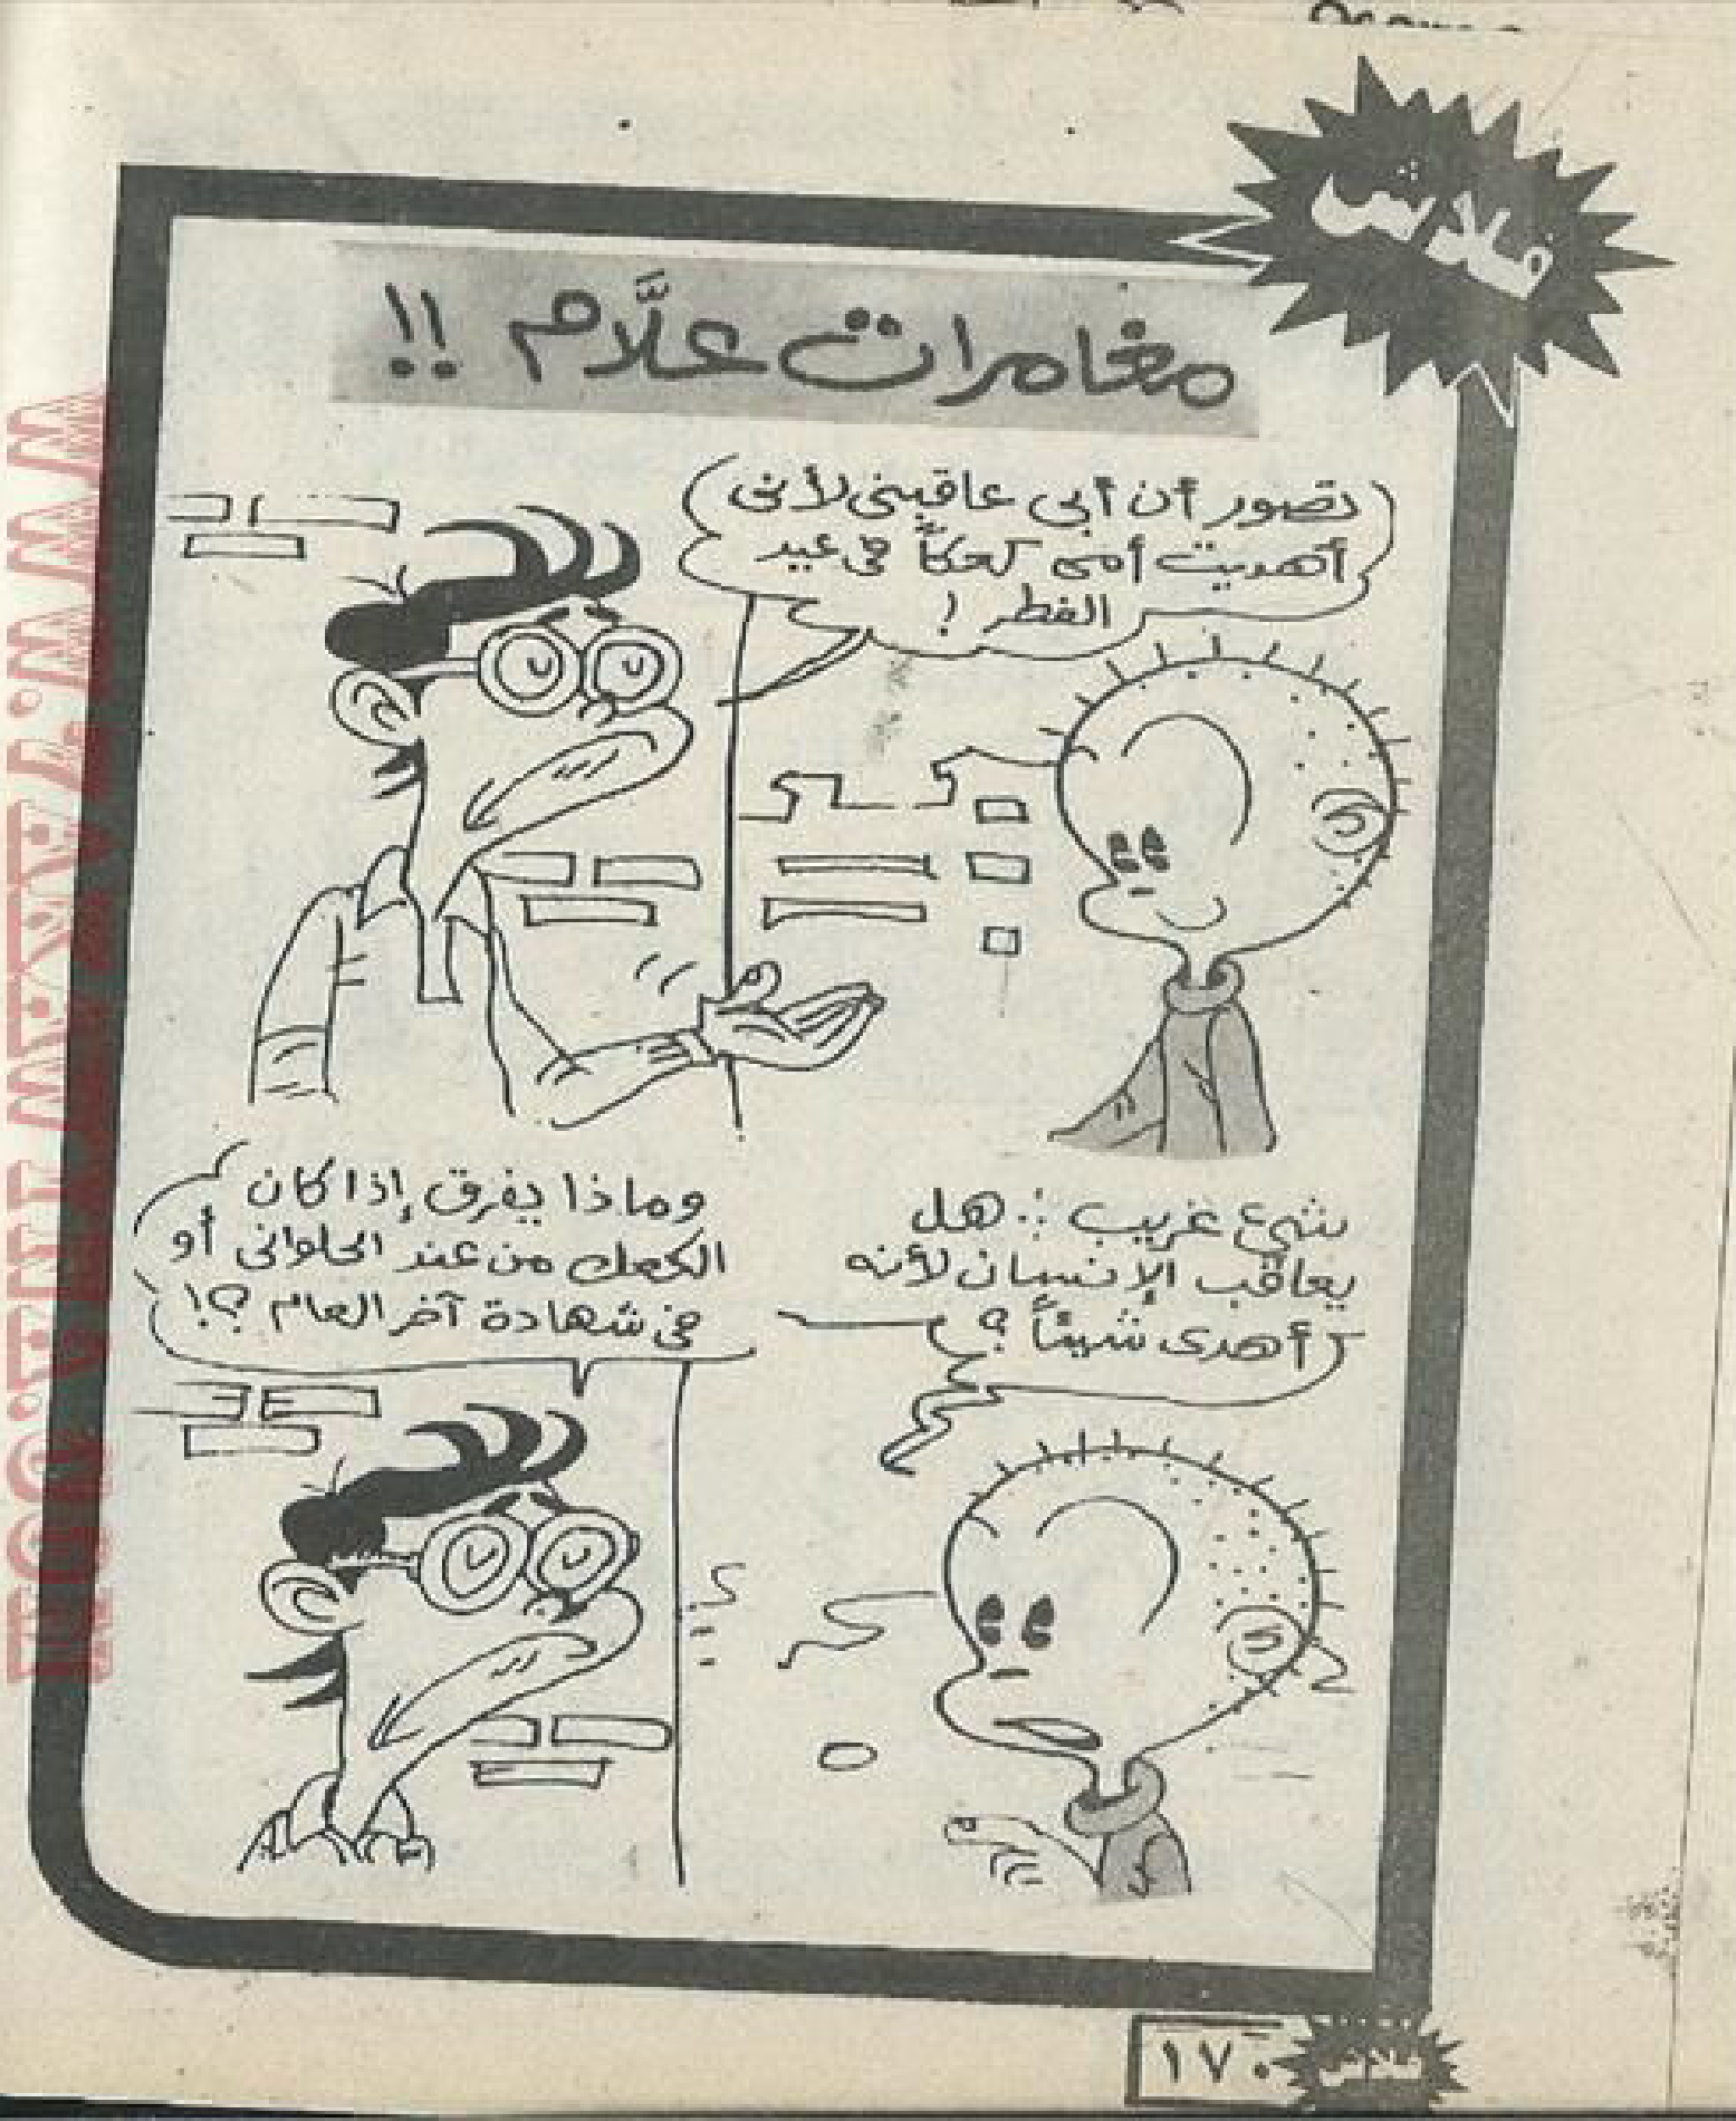 فلاش
مغامرات علَّام !!
تصور أن أبى عاقبنى لأنى
أهديت أمى كعكاً فى عيد
الفطر !
شئ غريب .. هل
يعاقب الإنسان لأنه
أهدى شيئاً ؟
وماذا يفرق إذا كان
الكعك من عند الحلوانى أو
فى شهادة آخر العام ؟!
١٧٠
فلاش